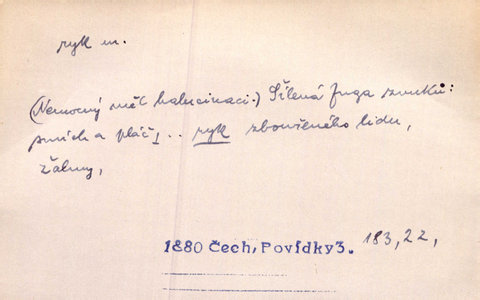 ryk m.
(Nemocný měl halucinaci.) Šílená fuga zvuků:
smích a pláč, .. ryk zbouřeného lidu,
žalmy,
1880 Čech, Povídky 3. 183, 22,